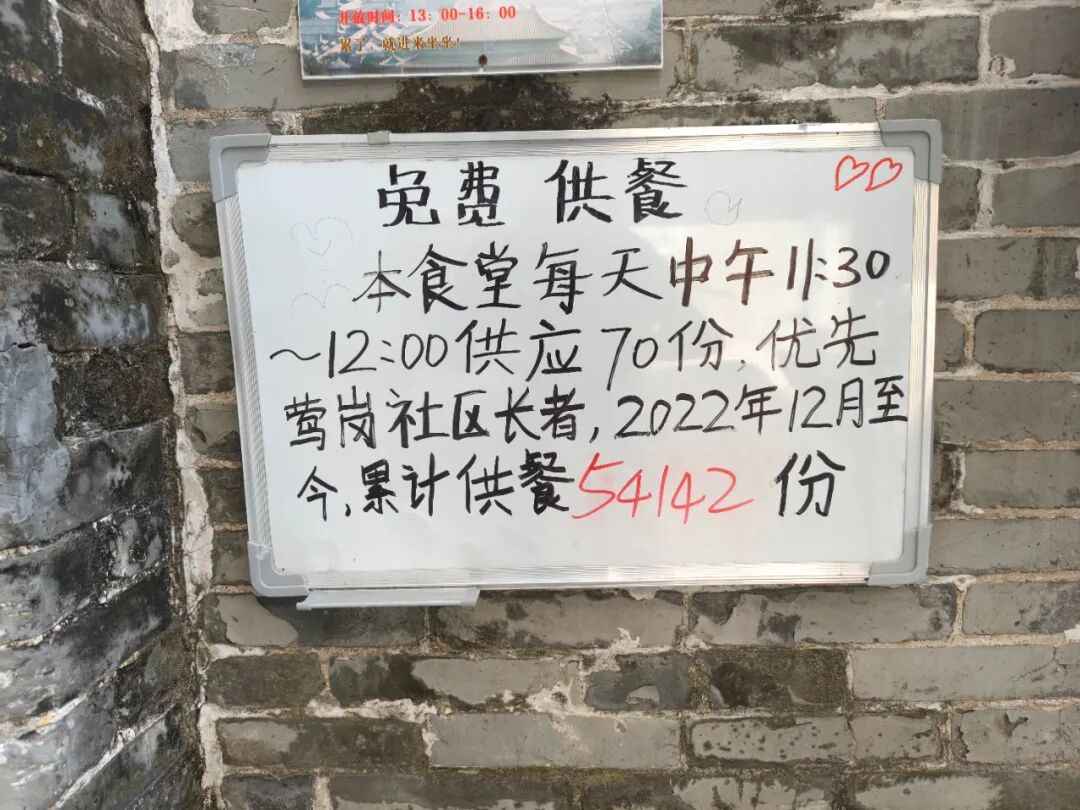 开放时间：13：00-16：00
累了，就进来坐坐！
免费 供餐
本食堂每天中午11:30
~12:00供应70份,优先
莺岗社区长者,2022年12月至
今,累计供餐54142份